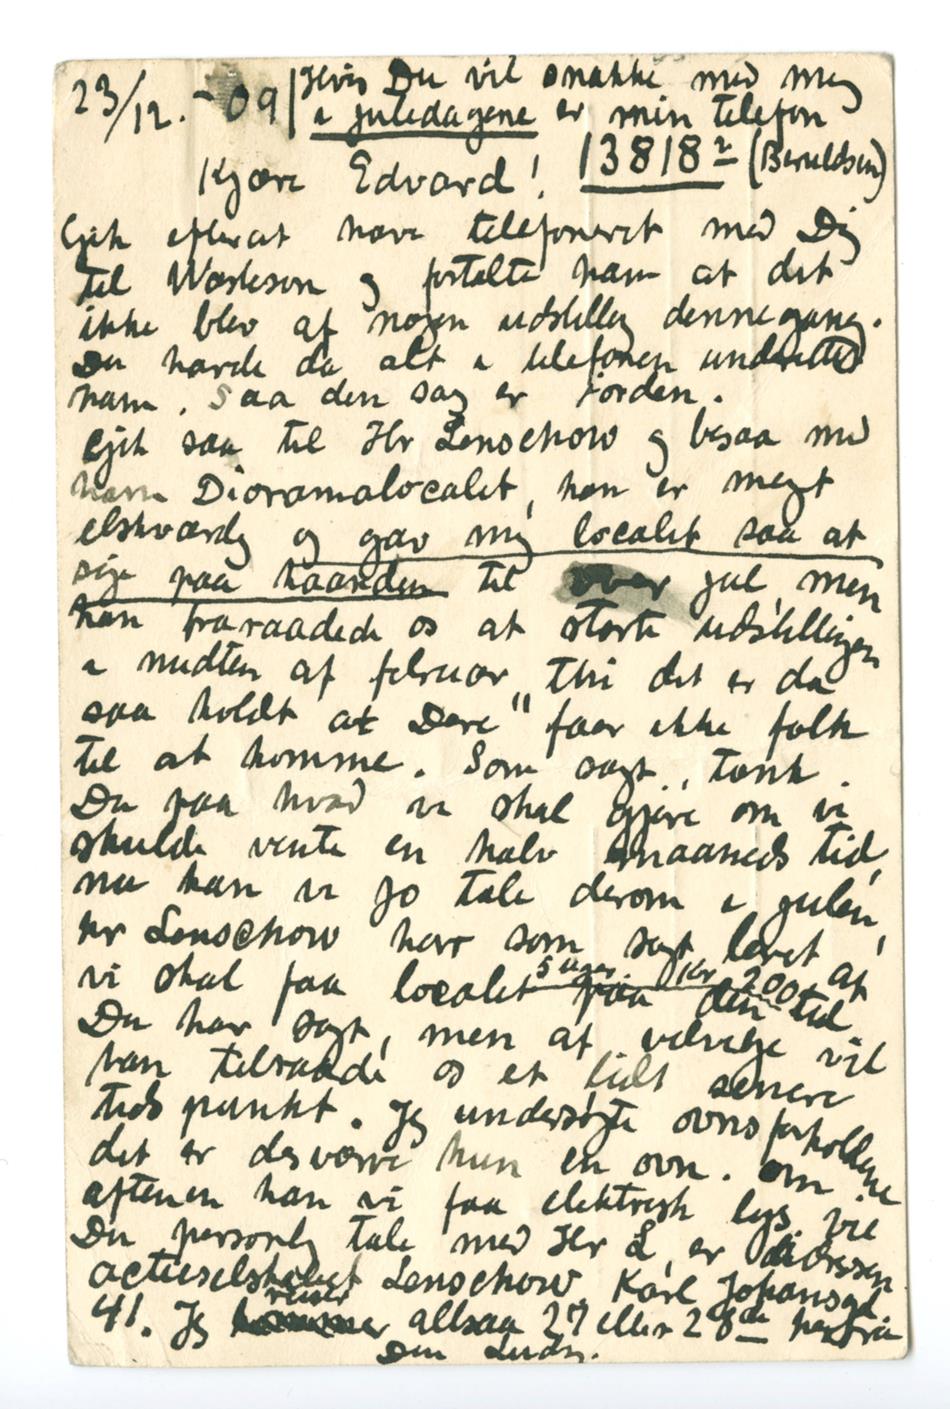 23/12. - 09 | Hvis Du vil snakke med meg
i juledagene er min telefon
13818² (Beruldsen)
Kjære Edvard!
Gik efterat have telefoneret med Dig
til Wæsleson og fortalte ham at det
ikke blev af nogen udstilling dennegang.
Du havde da alt i telefonen underrettet
ham. Saa den sag er iorden.
Gik saa til Hr Lenschow og besaa med
ham Dioramalocalet, han er meget
elskværdig og gav mig localet saa at
sige paa haanden til over jul, men
han fraraadede os at starte udstillingen
i midten af februar "Thi det er da
saa koldt at Dere" faar ikke folk
til at komme. Som sagt, tænk
Du paa hvad vi skal gjøre om vi
skulde vente en halv maaneds tid,
nu kan vi jo tale derom i julen,
Hr Lenschow har som sagt lovet at
vi skal faa localet paa den tid
5 uger Kr 200
Du har sagt, men at velvilje vil
han tilraade os et lidt senere
tidspunkt. Jeg undersøgte ovnsforholdene
det er desværre kun en ovn. Om
aftenen kan vi faa elektrisk lys, vil
Du personlig tale med Hr L, er
actieselskabet Lenschow, Karl Johansgd
41. Jeg reiser altsaa 27 eller 28de herfra
Din Ludv.